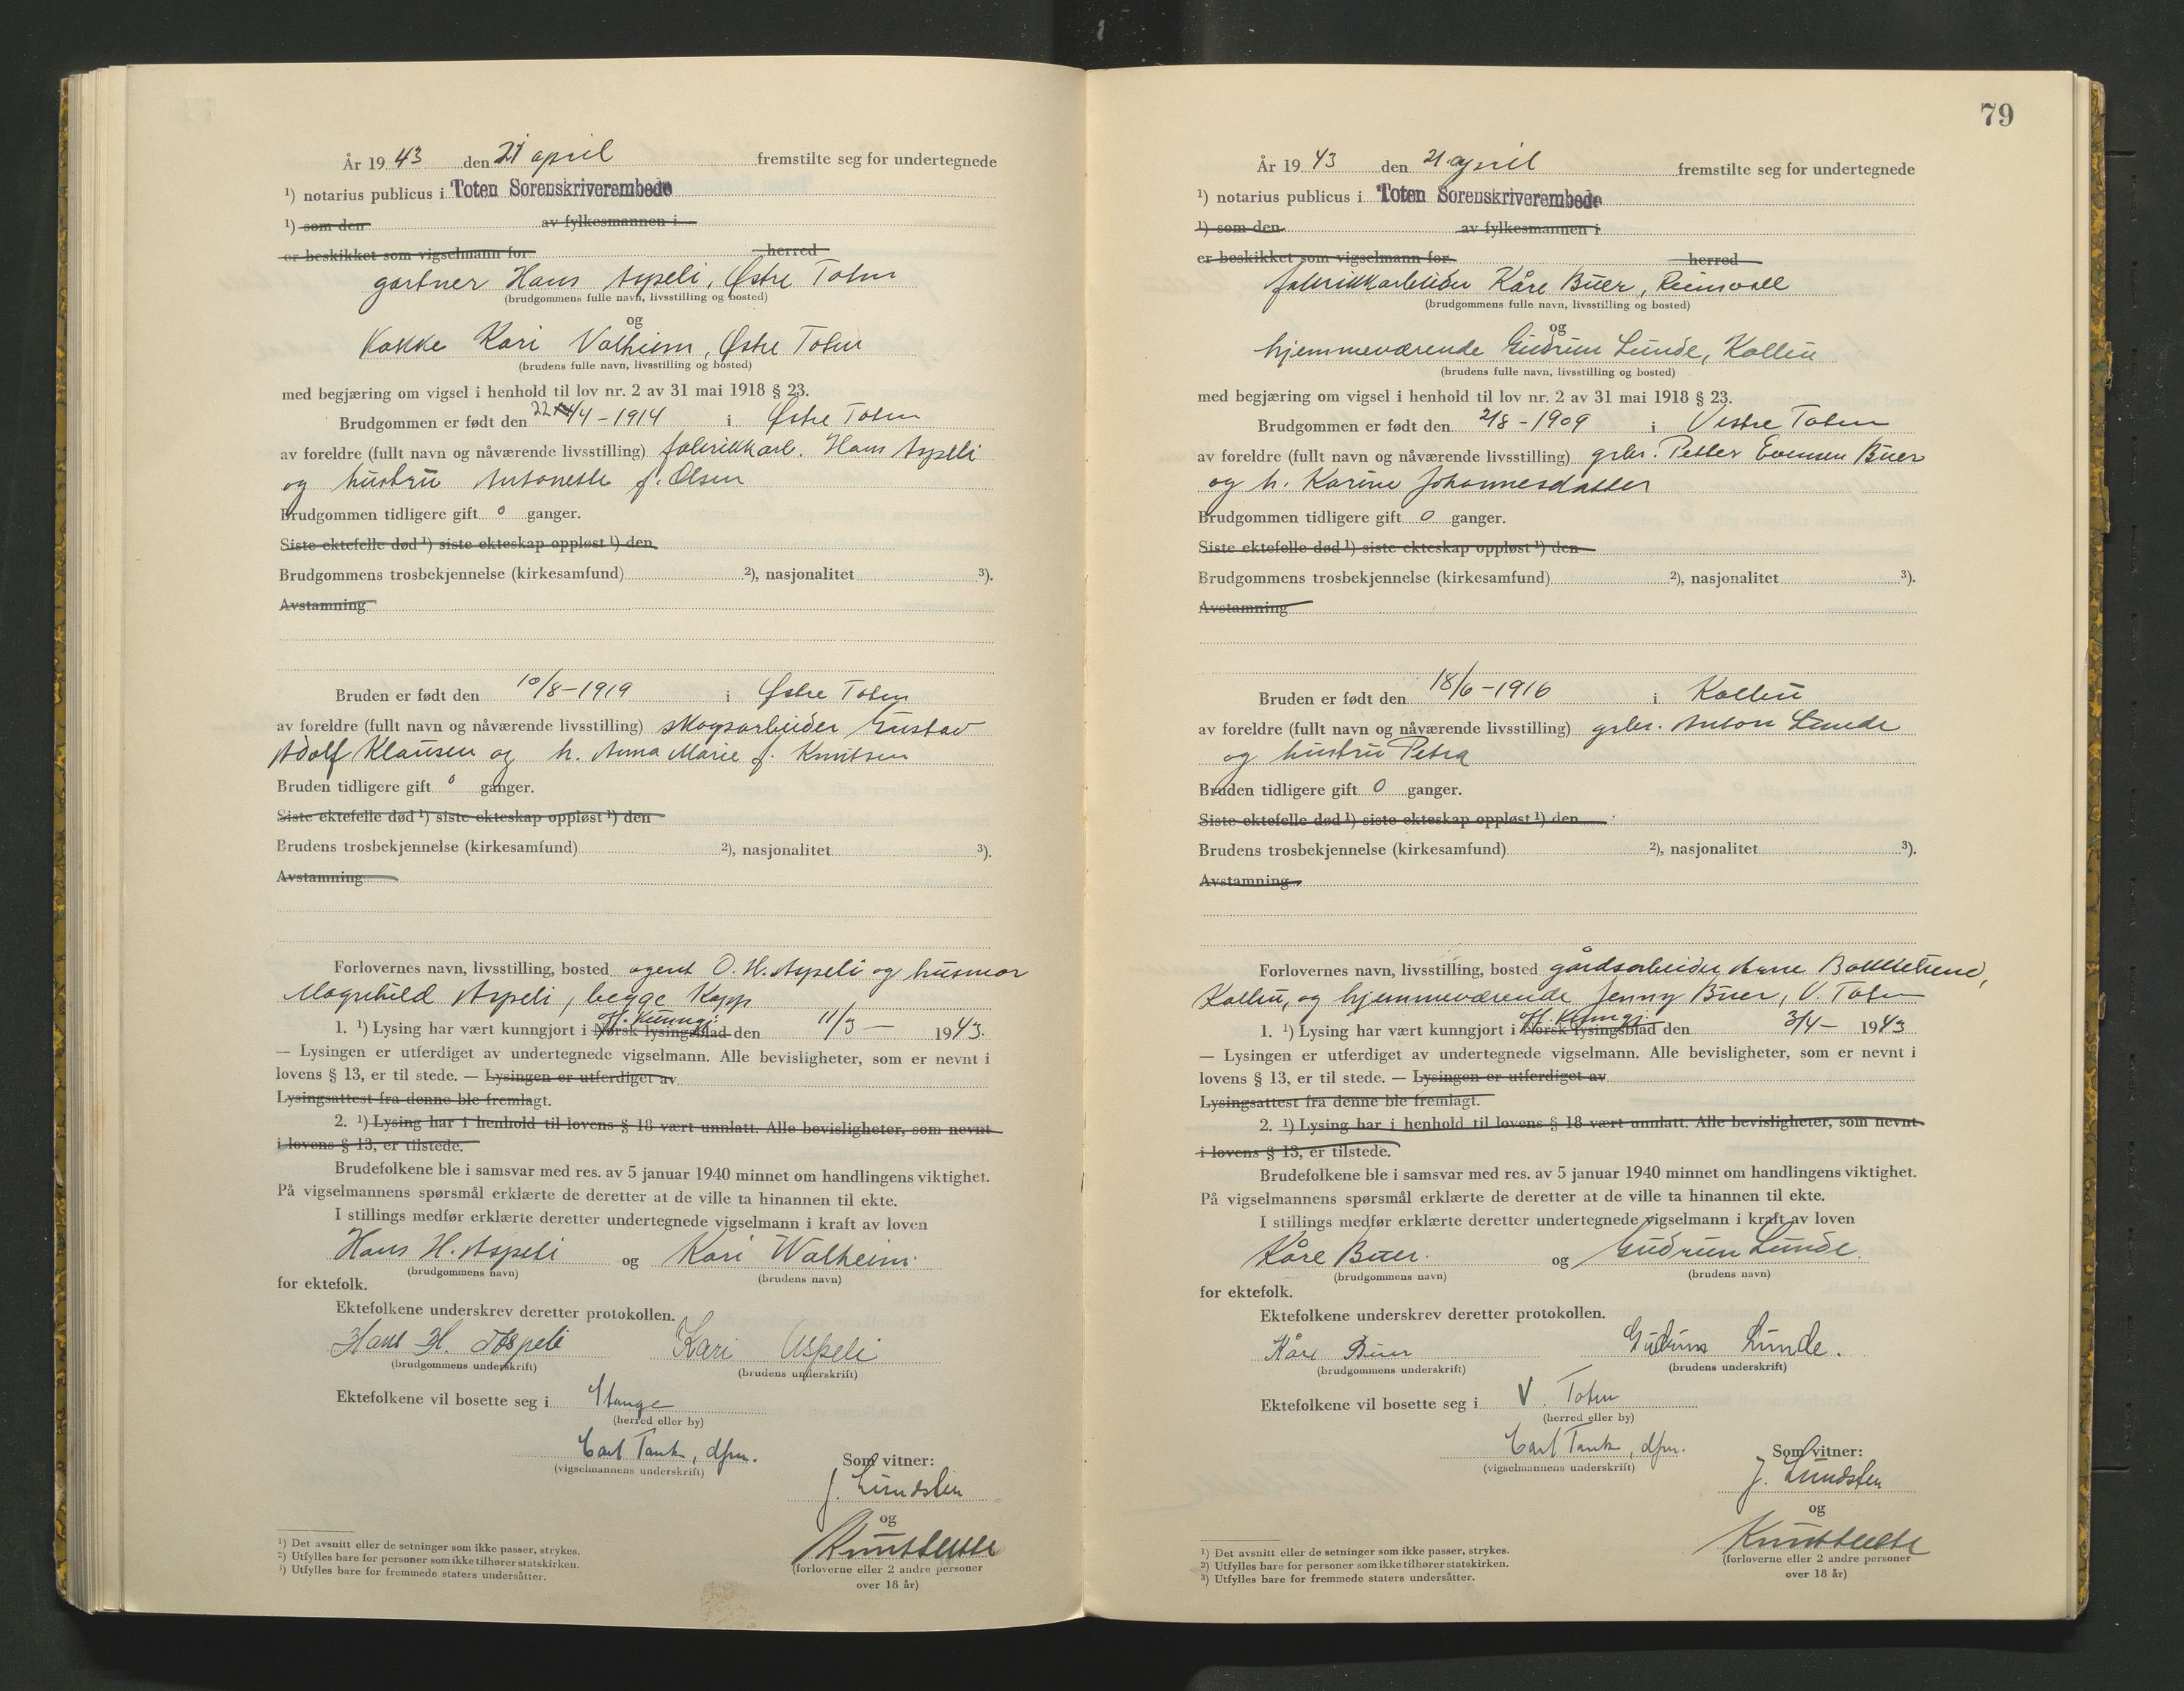 År 1943 den 21 april fremstilte seg for undertegnede
¹) notarius publicus i Toten Sorenskriverembede
¹) som den av fylkesmannen i
er beskikket som vigselmann for herred
gartner Hans Aspeli, Østre Toten
(brudgommens fulle navn, livsstilling og bosted)
og
Kokke Kari Valheim, Østre Toten
(brudens fulle navn, livsstilling og bosted)
med begjæring om vigsel i henhold til lov nr. 2 av 31 mai 1918 § 23.
Brudgommen er født den 22/4 - 1914 i Østre Toten
av foreldre (fullt navn og nåværende livsstilling) fabrikkarb. Hans Aspeli
og hustru Antonette f. Olsen
Brudgommen tidligere gift 0 ganger.
Siste ektefelle død ¹) siste ekteskap oppløst ¹) den
Brudgommens trosbekjennelse (kirkesamfund) ²), nasjonalitet ³).
Avstamning
Bruden er født den 10/8 - 1919 i Østre Toten
av foreldre (fullt navn og nåværende livsstilling) skogsarbeider Gustav
Adolf Klausen og h. Anna Marie f. Knutsen
Bruden tidligere gift 0 ganger.
Siste ektefelle død ¹) siste ekteskap oppløst ¹) den
Brudens trosbekjennelse (kirkesamfund) ²), nasjonalitet ³).
Avstamning
Forlovernes navn, livsstilling, bosted agent O. H. Aspeli og husmor
Magnhild Aspeli, begge Kapp
off. Kunngj.
1. ¹) Lysing har vært kunngjort i Norsk lysingsblad den 11/3 - 1943.
— Lysingen er utferdiget av undertegnede vigselmann. Alle bevisligheter, som er nevnt i
lovens § 13, er til stede. — Lysingen er utferdiget av
Lysingsattest fra denne ble fremlagt.
2. ¹) Lysing har i henhold til lovens § 18 vært unnlatt. Alle bevisligheter, som nevnt
i lovens § 13, er tilstede.
Brudefolkene ble i samsvar med res. av 5 januar 1940 minnet om handlingens viktighet.
På vigselmannens spørsmål erklærte de deretter at de ville ta hinannen til ekte.
I stillings medfør erklærte deretter undertegnede vigselmann i kraft av loven
Hans H. Aspeli og Kari Walheim.
(brudgommens navn) (brudens navn)
for ektefolk.
Ektefolkene underskrev deretter protokollen.
Hans H. Aspeli Kari Aspeli
(brudgommens underskrift) (brudens underskrift)
Ektefolkene vil bosette seg i Stange
(herred eller by)
Carl Tank, dfm.
(vigselmannens underskrift)
Som vitner:
J. Lundsten
og
(forloverne eller 2 andre personer
over 18 år)
¹) Det avsnitt eller de setninger som ikke passer, strykes.
²) Utfylles bare for personer som ikke tilhører statskirken.
³) Utfylles bare for fremmede staters undersåtter.
79
År 1943 den 21. april fremstilte seg for undertegnede
¹) notarius publicus i Toten Sorenskriverembede
¹) som den av fylkesmannen i
er beskikket som vigselmann for herred
fabrikkarbeider Kåre Buer, Reinsvoll
(brudgommens fulle navn, livsstilling og bosted)
og
hjemmeværende Gudrun Lunde, Kolbu
(brudens fulle navn, livsstilling og bosted)
med begjæring om vigsel i henhold til lov nr. 2 av 31 mai 1918 § 23.
Brudgommen er født den 2/8 - 1909 i Vestre Toten
av foreldre (fullt navn og nåværende livsstilling) grbr. Petter Evensen Buer
og h. Karine Johannesdatter
Brudgommen tidligere gift 0 ganger.
Siste ektefelle død ¹) siste ekteskap oppløst ¹) den
Brudgommens trosbekjennelse (kirkesamfund) ²), nasjonalitet ³).
Avstamning
Bruden er født den 18/6 - 1916 i Kolbu
av foreldre (fullt navn og nåværende livsstilling) grbr. Anton Lunde
og hustru Petra
Bruden tidligere gift 0 ganger.
Siste ektefelle død ¹) siste ekteskap oppløst ¹) den
Brudens trosbekjennelse (kirkesamfund) ²), nasjonalitet ³).
Avstamning
Forlovernes navn, livsstilling, bosted gårdsarbeider Arne
Kolbu, og hjemmeværende Jenny Buer, V. Toten
off. Kunngj.
1. ¹) Lysing har vært kunngjort i Norsk lysingsblad den 3/4 - 1943
— Lysingen er utferdiget av undertegnede vigselmann. Alle bevisligheter, som er nevnt i
lovens § 13, er til stede. — Lysingen er utferdiget av
Lysingsattest fra denne ble fremlagt.
2. ¹) Lysing har i henhold til lovens § 18 vært unnlatt. Alle bevisligheter, som nevnt
i lovens § 13, er tilstede.
Brudefolkene ble i samsvar med res. av 5 januar 1940 minnet om handlingens viktighet.
På vigselmannens spørsmål erklærte de deretter at de ville ta hinannen til ekte.
I stillings medfør erklærte deretter undertegnede vigselmann i kraft av loven
Kåre Buer. og Gudrun Lunde.
(brudgommens navn) (brudens navn)
for ektefolk.
Ektefolkene underskrev deretter protokollen.
Kåre Buer Gudrun Lunde.
(brudgommens underskrift) (brudens underskrift)
Ektefolkene vil bosette seg i V. Toten
(herred eller by)
Carl Tank, dfm.
(vigselmannens underskrift)
Som vitner:
J. Lundsten
og
(forloverne eller 2 andre personer
over 18 år)
¹) Det avsnitt eller de setninger som ikke passer, strykes.
²) Utfylles bare for personer som ikke tilhører statskirken.
³) Utfylles bare for fremmede staters undersåtter.